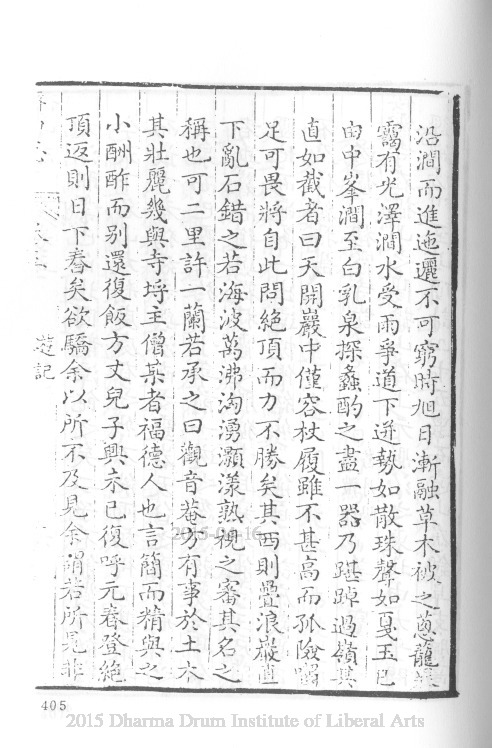 沿澗而進迤邐不可窮時旭日漸融草木被之蔥蘢
靄有光澤澗水受雨爭道下迸勢如散珠聲如戛玉已
由中峯澗至白乳泉探蠡酌之盡一器乃踸踔過嶺其
直如截者曰天開巖中僅容杖履雖不甚高而孤險
足可畏將自此問絕頂而力不勝矣其西則疊浪巖直
下亂石錯之若海波萬沸洶湧灝漾熟視之審其名之
稱也可二里許一蘭若承之曰觀音菴方有事於土木
其壯麗幾與寺埒主僧某者福德人也言簡而精與之
小酬酢而別還復飯方丈兒子興亦已復呼元春登絕
頂返則日下舂矣欲驕余以所不及見余謂若所見非
遊記
405
2015-04-16
2015 Dharma Drum Institute of Liberal Arts